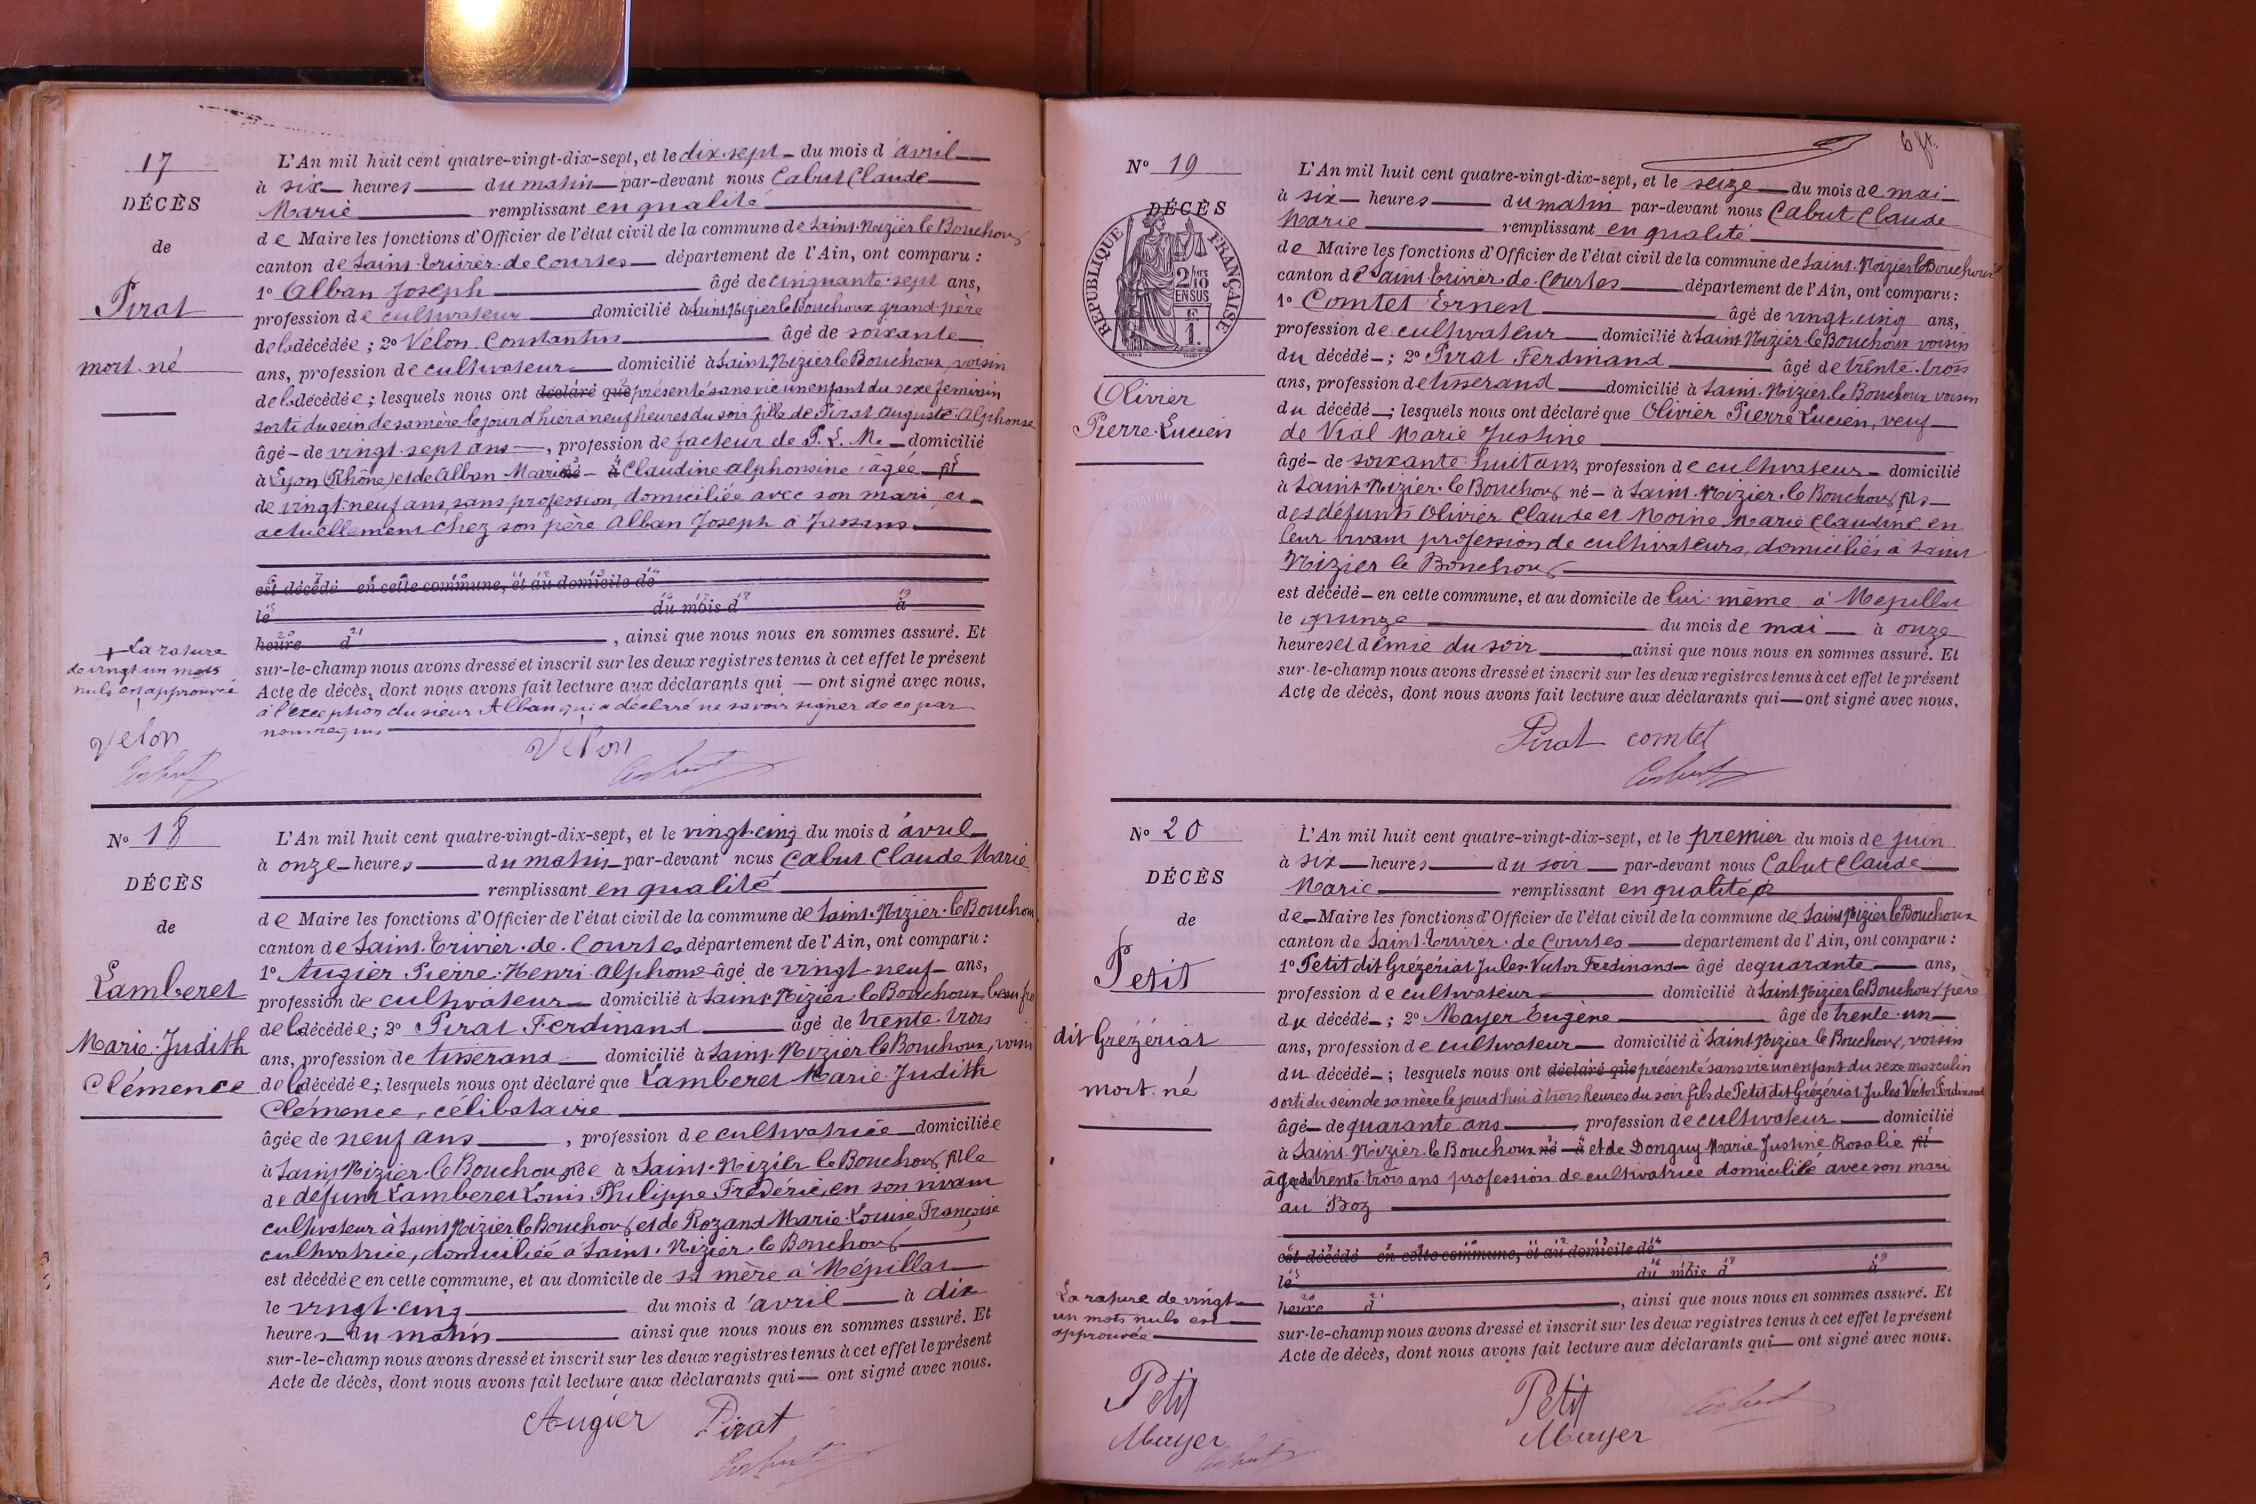 17
DÉCÈS
de
Pirat
mort-né
L'An mil huit cent quatre-vingt-dix-sept, et le dix-sept du mois d'avril
à six heures du matin par-devant nous Cabut Claude
Marie remplissant en qualité
de Maire les fonctions d'Officier de l'état civil de la commune de Saint-Nizier le Bouchoux
canton de Saint-Trivier-de-Courtes département de l'Ain, ont comparu :
1° Alban Joseph âgé de cinquante-sept ans,
profession de cultivateur domicilié à Saint Nizier le Bouchoux grand-père
de la décédée ; 2° Velon Constantin âgé de soixante
ans, profession de cultivateur domicilié à Saint-Nizier le Bouchoux, voisin
de la décédée ; lesquels nous ont déclaré que présenté sans vie un enfant du sexe féminin
sorti du sein de sa mère le jour d'hier à neuf heures du soir fille de Pirat Auguste Alphonse
âgé de vingt-sept ans, profession de facteur de P. L. M. domicilié
à Lyon (Rhône) et de Alban Marie né à Claudine Alphonsine âgée fil
de vingt-neuf ans, sans profession, domiciliée avec son mari et
actuellement chez son père Alban Joseph à
est décédé en cette commune, et au domicile de
le du mois d à
heure d , ainsi que nous nous en sommes assuré. Et
sur-le-champ nous avons dressé et inscrit sur les deux registres tenus à cet effet le présent
Acte de décès, dont nous avons fait lecture aux déclarants qui ont signé avec nous,
à l'exception du sieur Alban qui a déclaré ne savoir signer de ce par
nous requis
+ La rature
de vingt un mots
nuls est approuvée
Velon
Cabut
Velon
Cabut
N° 18
DÉCÈS
de
Lamberet
Marie-Judith
Clémence
L'An mil huit cent quatre-vingt-dix-sept, et le vingt-cinq du mois d'avril
à onze heures du matin par-devant nous Cabut Claude Marie
remplissant en qualité
de Maire les fonctions d'Officier de l'état civil de la commune de Saint-Nizier-le Bouchoux
canton de Saint-Trivier-de-Courtes département de l'Ain, ont comparu :
1° Augier Pierre-Henri Alphonse âgé de vingt-neuf ans,
profession de cultivateur domicilié à Saint-Nizier-le Bouchoux beau frè
de la décédée ; 2° Pirat Ferdinand âgé de trente-trois
ans, profession de tisserand domicilié à Saint-Nizier le Bouchoux, voisin
de la décédée ; lesquels nous ont déclaré que Lamberet Marie-Judith
Clémence, célibataire
âgée de neuf ans , profession de cultivatrice domiciliée
à Saint Nizier-le Bouchoux née à Saint-Nizier le Bouchoux fille
de défunt Lamberet Louis Philippe Frédéric, en son vivant
cultivateur à Saint Nizier le Bouchoux et de Rozand Marie-Louise Françoise
cultivatrice, domiciliée à Saint-Nizier-le Bouchoux
est décédée en cette commune, et au domicile de sa mère à Mépillat
le vingt-cinq du mois d'avril à dix
heures du matin ainsi que nous nous en sommes assuré. Et
sur-le-champ nous avons dressé et inscrit sur les deux registres tenus à cet effet le présent
Acte de décès, dont nous avons fait lecture aux déclarants qui ont signé avec nous.
Augier Pirat
Cabut
6 ft.
N° 19
DÉCÈS
RÉPUBLIQUE FRANÇAISE
2/10
EN SUS
F
1.
Olivier
Pierre-Lucien
L'An mil huit cent quatre-vingt-dix-sept, et le seize du mois de mai
à six heures du matin par-devant nous Cabut Claude
Marie remplissant en qualité
de Maire les fonctions d'Officier de l'état civil de la commune de Saint-Nizier le Bouchoux
canton de Saint-Trivier-de-Courtes département de l'Ain, ont comparu :
1° Comtet Ernest âgé de vingt-cinq ans,
profession de cultivateur domicilié à Saint Nizier le Bouchoux voisin
du décédé ; 2° Pirat Ferdinand âgé de trente-trois
ans, profession de tisserand domicilié à Saint-Nizier-le Bouchoux voisin
du décédé ; lesquels nous ont déclaré que Olivier Pierre Lucien, veuf
de Vial Marie Justine
âgé de soixante-huit ans, profession de cultivateur domicilié
à Saint-Nizier-le Bouchoux né à Saint-Nizier-le Bouchoux fils
des défunts Olivier Claude et Moine Marie Claudine en
leur vivant profession de cultivateurs, domiciliés à Saint
Nizier le Bouchoux
est décédé en cette commune, et au domicile de lui-même à Mépillat
le quinze du mois de mai à onze
heures et demie du soir ainsi que nous nous en sommes assuré. Et
sur-le-champ nous avons dressé et inscrit sur les deux registres tenus à cet effet le présent
Acte de décès, dont nous avons fait lecture aux déclarants qui ont signé avec nous.
Pirat comtet
Cabut
N° 20
DÉCÈS
de
Petit
dit Grézériat
mort-né
L'An mil huit cent quatre-vingt-dix-sept, et le premier du mois de juin
à six heures du soir par-devant nous Cabut Claude
Marie remplissant en qualité
de Maire les fonctions d'Officier de l'état civil de la commune de Saint Nizier le Bouchoux
canton de Saint-Trivier-de Courtes département de l'Ain, ont comparu :
1° Petit dit Grézériat Jules Victor Ferdinand âgé de quarante ans,
profession de cultivateur domicilié à Saint Nizier le Bouchoux père
du décédé ; 2° Mayer Eugène âgé de trente-un
ans, profession de cultivateur domicilié à Saint Nizier le Bouchoux, voisin
du décédé ; lesquels nous ont déclaré que présenté sans vie un enfant du sexe masculin
sorti du sein de sa mère le jour d'hui à trois heures du soir fils de Petit dit Grézériat Jules Victor Ferdinand
âgé de quarante ans, profession de cultivateur domicilié
à Saint-Nizier-le Bouchoux né à et de Donguy Marie Justine Rosalie fil
âgée de trente-trois ans profession de cultivatrice domiciliée avec son mari
au Boz
est décédé en cette commune, et au domicile de
le du mois d à
heure d , ainsi que nous nous en sommes assuré. Et
sur-le-champ nous avons dressé et inscrit sur les deux registres tenus à cet effet le présent
Acte de décès, dont nous avons fait lecture aux déclarants qui ont signé avec nous.
La rature de vingt
un mots nuls est
approuvée
Petit
Mayer
Cabut
Petit
Mayer
Cabut